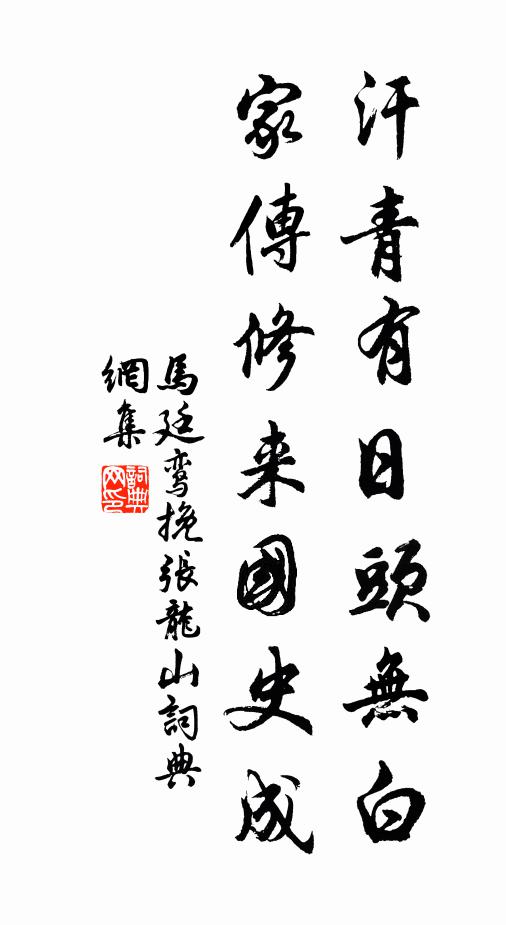 汗青有日頭無白
家傳修来國史成
馬廷鸾挽張龍山詞典
網集
詞典網印